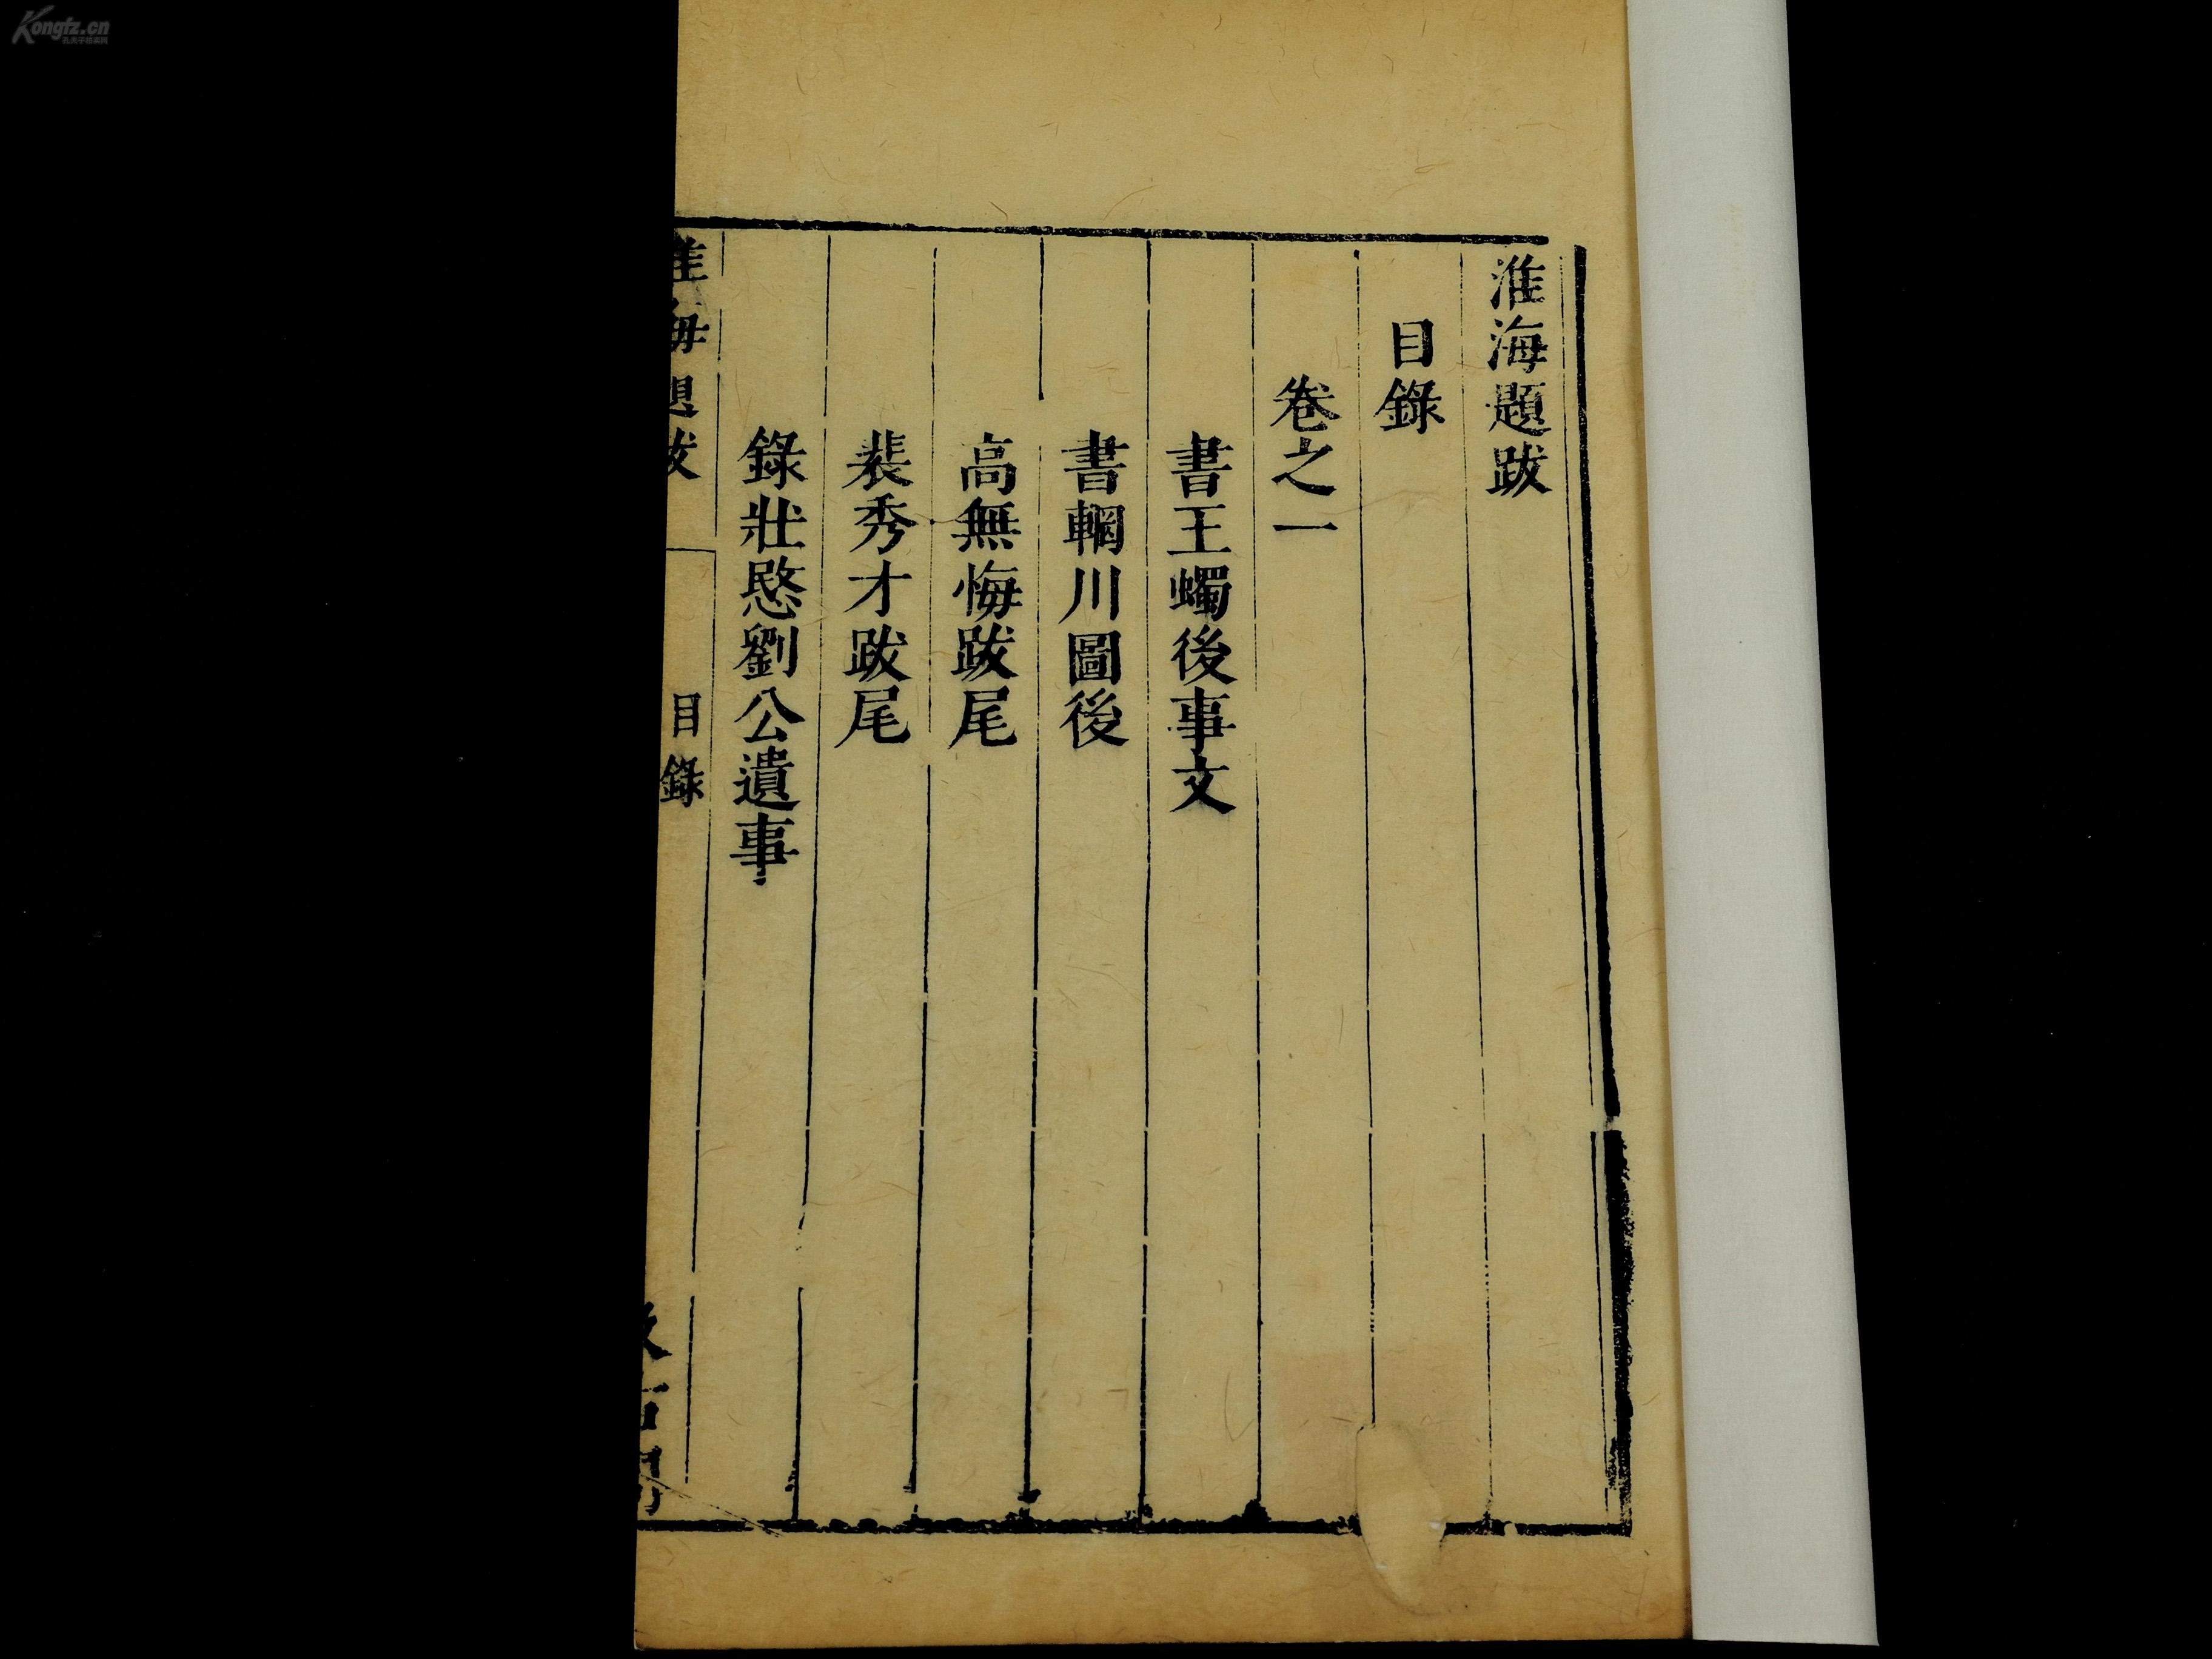 淮海題跋
目錄
卷之一
書王蠋後事文
書輞川圖後
高無悔跋尾
裴秀才跋尾
錄壯愍劉公遺事
目錄
Kongfz.cn